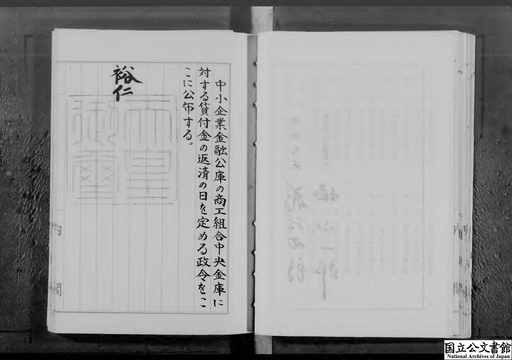 中小企業金融公庫の商工組合中央金庫に
対する貸付金の返済の日を定める政令をこ
こに公布する。
裕仁
天皇
御璽
国立公文書館
National Archives of Japan